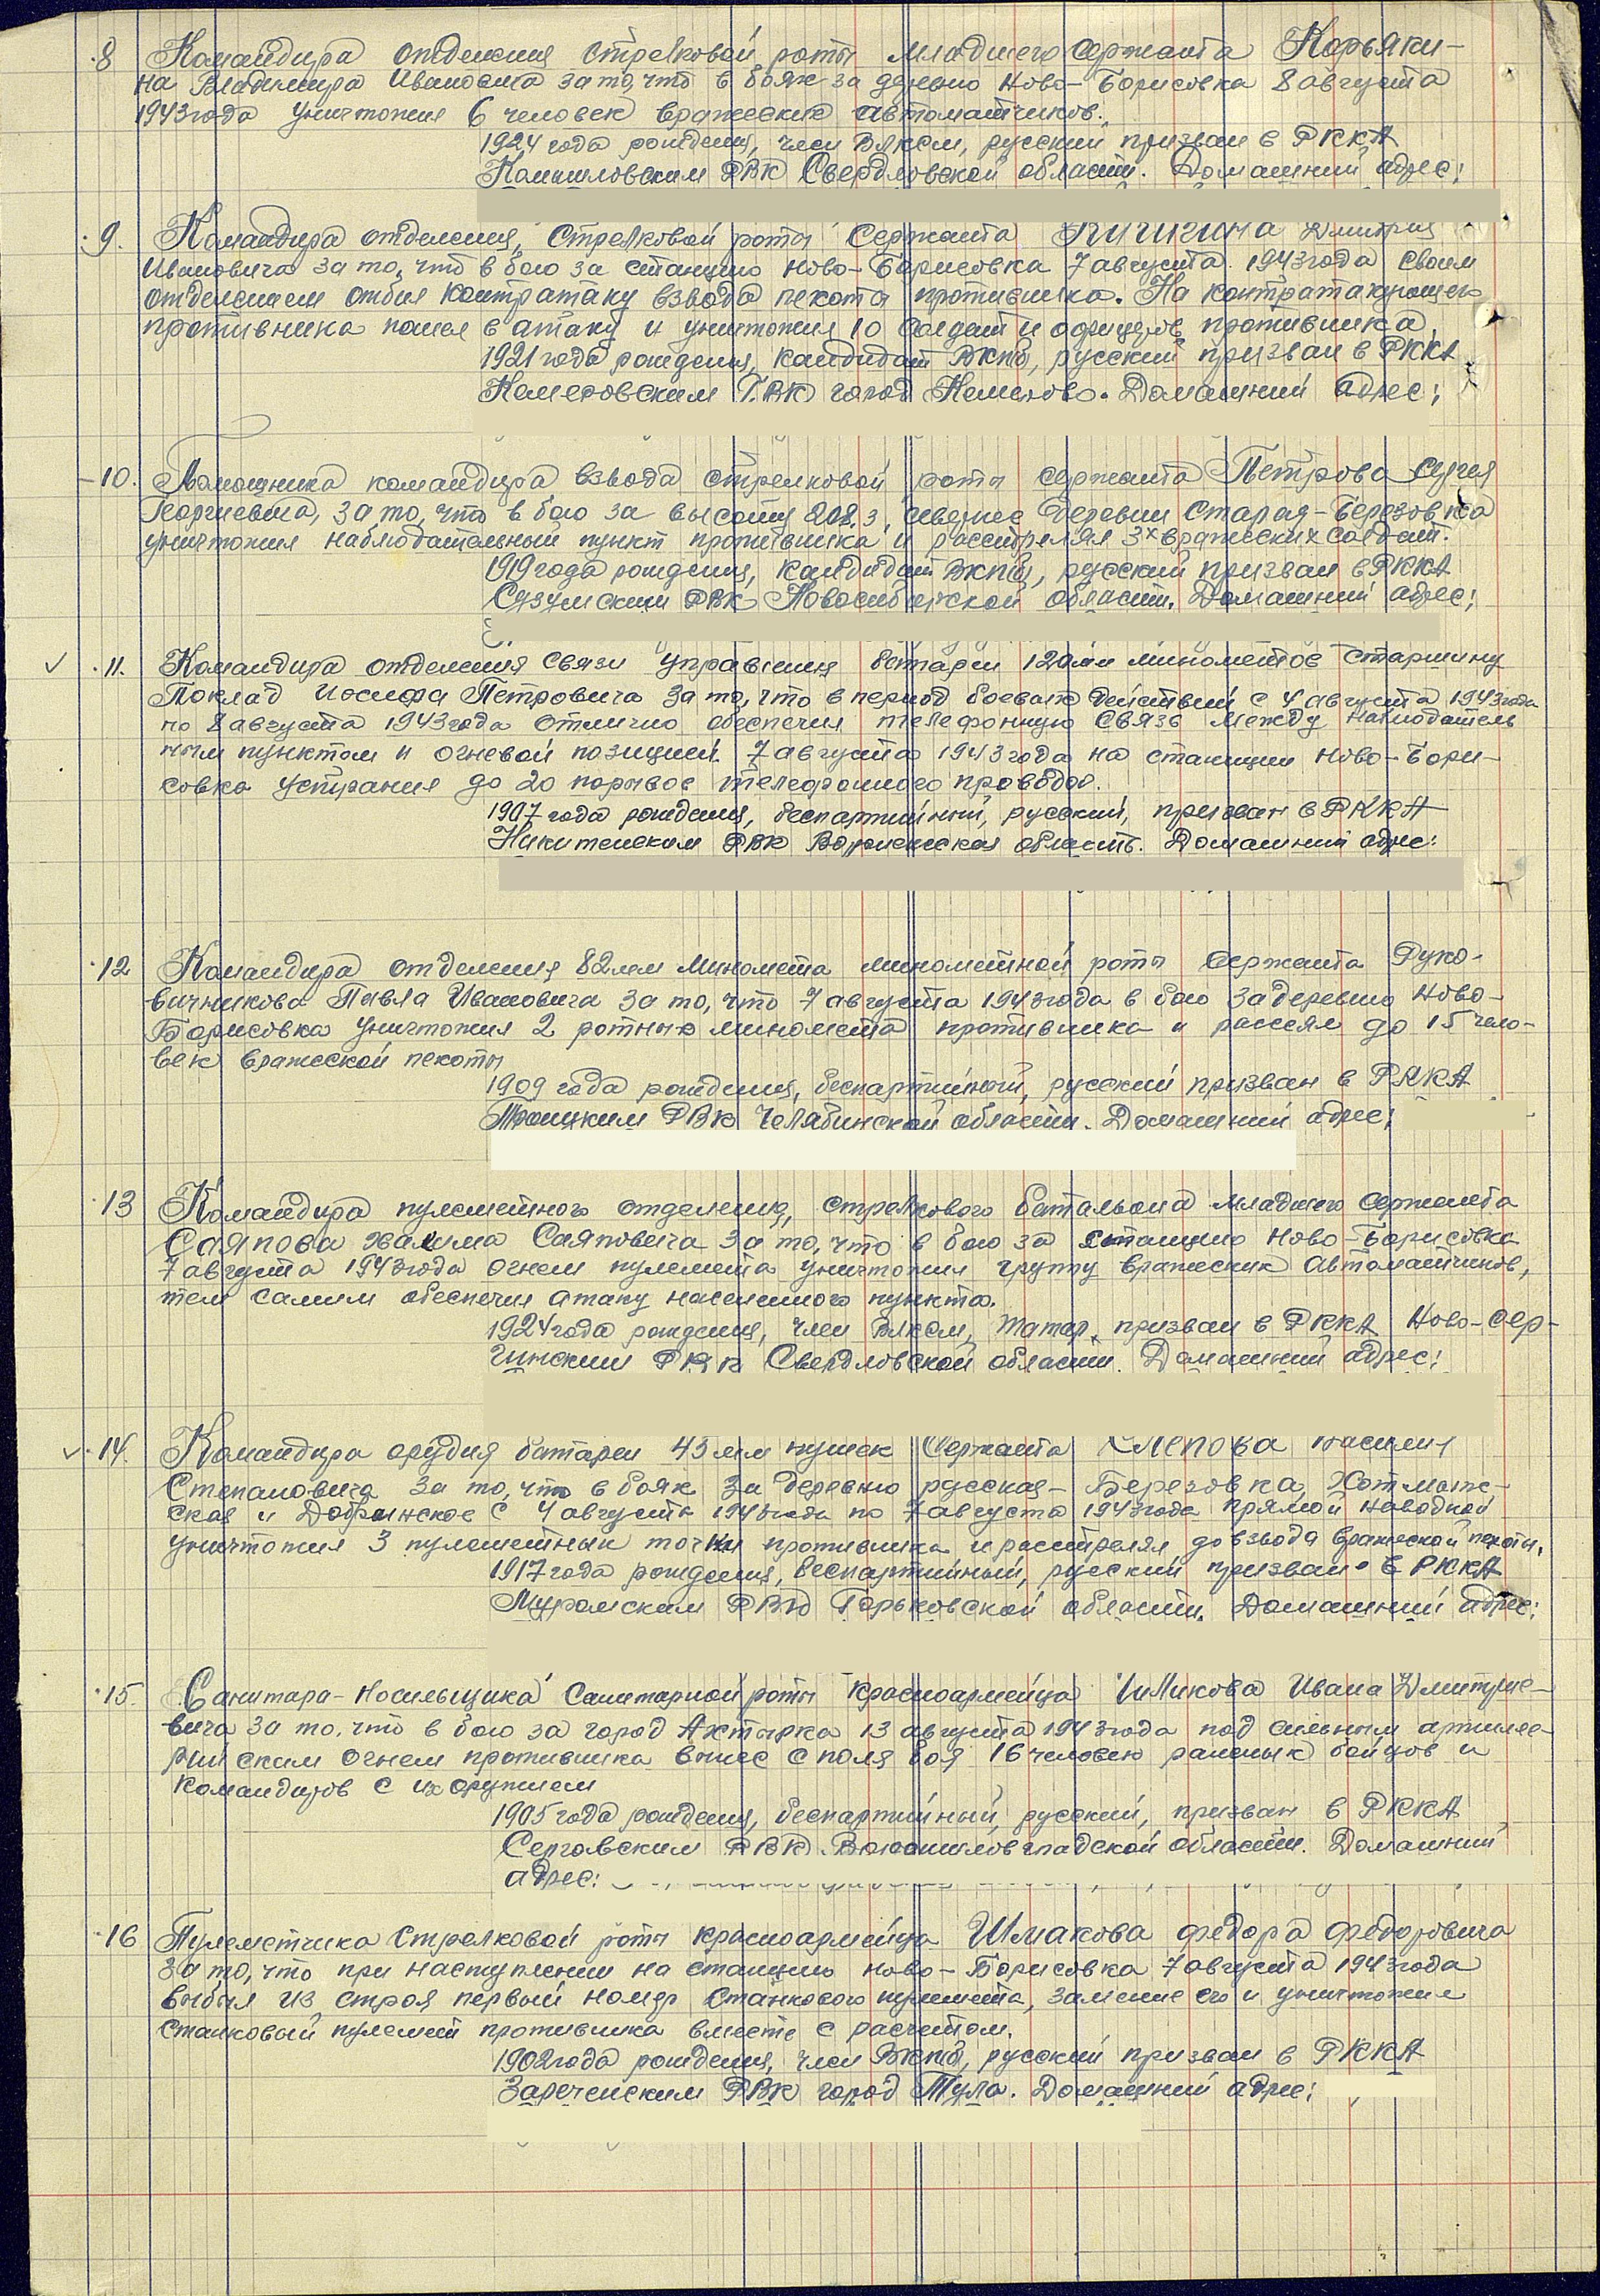 8 Командира отделения стрелковой роты младшего сержанта Корьяки-
на Владимира Ивановича за то, что в боях за деревню Ново-Борисовка 8 августа
1943 года уничтожил 6 человек вражеских автоматчиков.
1924 года рождения, член ВЛКСМ, русский призван в РККА
Камышловским РВК Свердловской области. Домашний адрес:
9. Командира отделения, стрелковой роты сержанта Кичигина Дмитрия
Ивановича за то, что в бою за станцию Ново-Борисовка 7 августа 1943 года своим
отделением отбил контратаку взвода пехоты противника. На контратакующего
противника пошел в атаку и уничтожил 10 солдат и офицеров противника.
1921 года рождения, кандидат ВКПб, русский призван в РККА
Кемеровским ГВК город Кемерово. Домашний адрес:
10. Помощника командира взвода стрелковой роты сержанта Петрова Сергея
Георгиевича, за то, что в бою за высоту 208,3, севернее деревни Старая-Березовка
уничтожил наблюдательный пункт противника и расстрелял 3х вражеских солдат.
1919 года рождения, кандидат ВКПб, русский призван в РККА
Сузунским РВК Новосибирской области. Домашний адрес:
11. Командира отделения связи управления батареи 120мм минометов старшину
Поклад Иосифа Петровича за то, что в период боевых действий с 4 августа 1943 года
по 8 августа 1943 года отлично обеспечил телефонную связь между наблюдатель
ным пунктом и огневой позицией. 7 августа 1943 года на станции Ново-Бори-
совка устранил до 20 порывов телефонного провода.
1907 года рождения, беспартийный, русский, призван в РККА
Никитенским РВК Воронежская область. Домашний адрес:
12 Командира отделения 82мм миномета минометной роты сержанта Руко-
вичникова Павла Ивановича за то, что 7 августа 1943 года в бою за деревню Ново-
Борисовка уничтожил 2 ротных миномета противника и рассеял до 15 чело-
век вражеской пехоты
1909 года рождения, беспартийный, русский призван в РККА
Троицким РВК Челябинской области. Домашний адрес:
13 Командира пулеметного отделения, стрелкового батальона младшего сержанта
Саяпова Халима Саяповича за то, что в бою за станцию Ново-Борисовка
7 августа 1943 года огнем пулемета уничтожил группу вражеских автоматчиков,
тем самым обеспечил атаку населенного пункта.
1924 года рождения, член ВЛКСМ, татар, призван в РККА Ново-Сер-
гинским РВК Свердловской области. Домашний адрес:
14. Командира орудия батареи 45мм пушек сержанта Слепова Василия
Степановича за то, что в боях за деревню русская-Березовка, Хотмыж-
ская и Добринское с 4 августа 1943 года по 7 августа 1943 года прямой наводкой
уничтожил 3 пулеметных точки противника и расстрелял до взвода вражеской пехоты.
1917 года рождения, беспартийный, русский призван в РККА
Муромским РВК Горьковской области. Домашний адрес:
15. Санитара-носильщика санитарной роты красноармейца Шликова Ивана Дмитрие-
вича за то, что в бою за город Ахтырка 13 августа 1943 года под сильным артилле-
рийским огнем противника вынес с поля боя 16 человек раненых бойцов и
командиров с их оружием
1905 года рождения, беспартийный, русский, призван в РККА
Серговским РВК Ворошиловградской области. Домашний
адрес:
16 Пулеметчика стрелковой роты красноармейца Шмакова Федора Федоровича
за то, что при наступлении на станцию Ново-Борисовка 7 августа 1943 года
выбыл из строя первый номер станкового пулемета, заменив его и уничтожил
станковый пулемет противника вместе с расчетом.
1902 года рождения, член ВКПб, русский призван в РККА
Зареченским РВК город Тула. Домашний адрес: